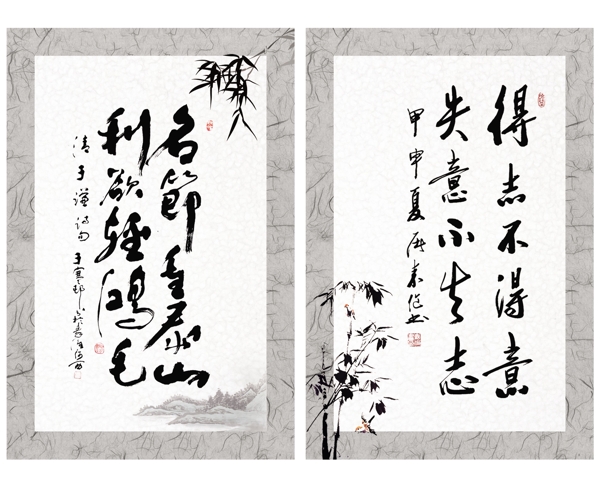 得志不得意
失意不失志
甲申夏
名節重泰山
利欲輕鴻毛
清于謙詩句